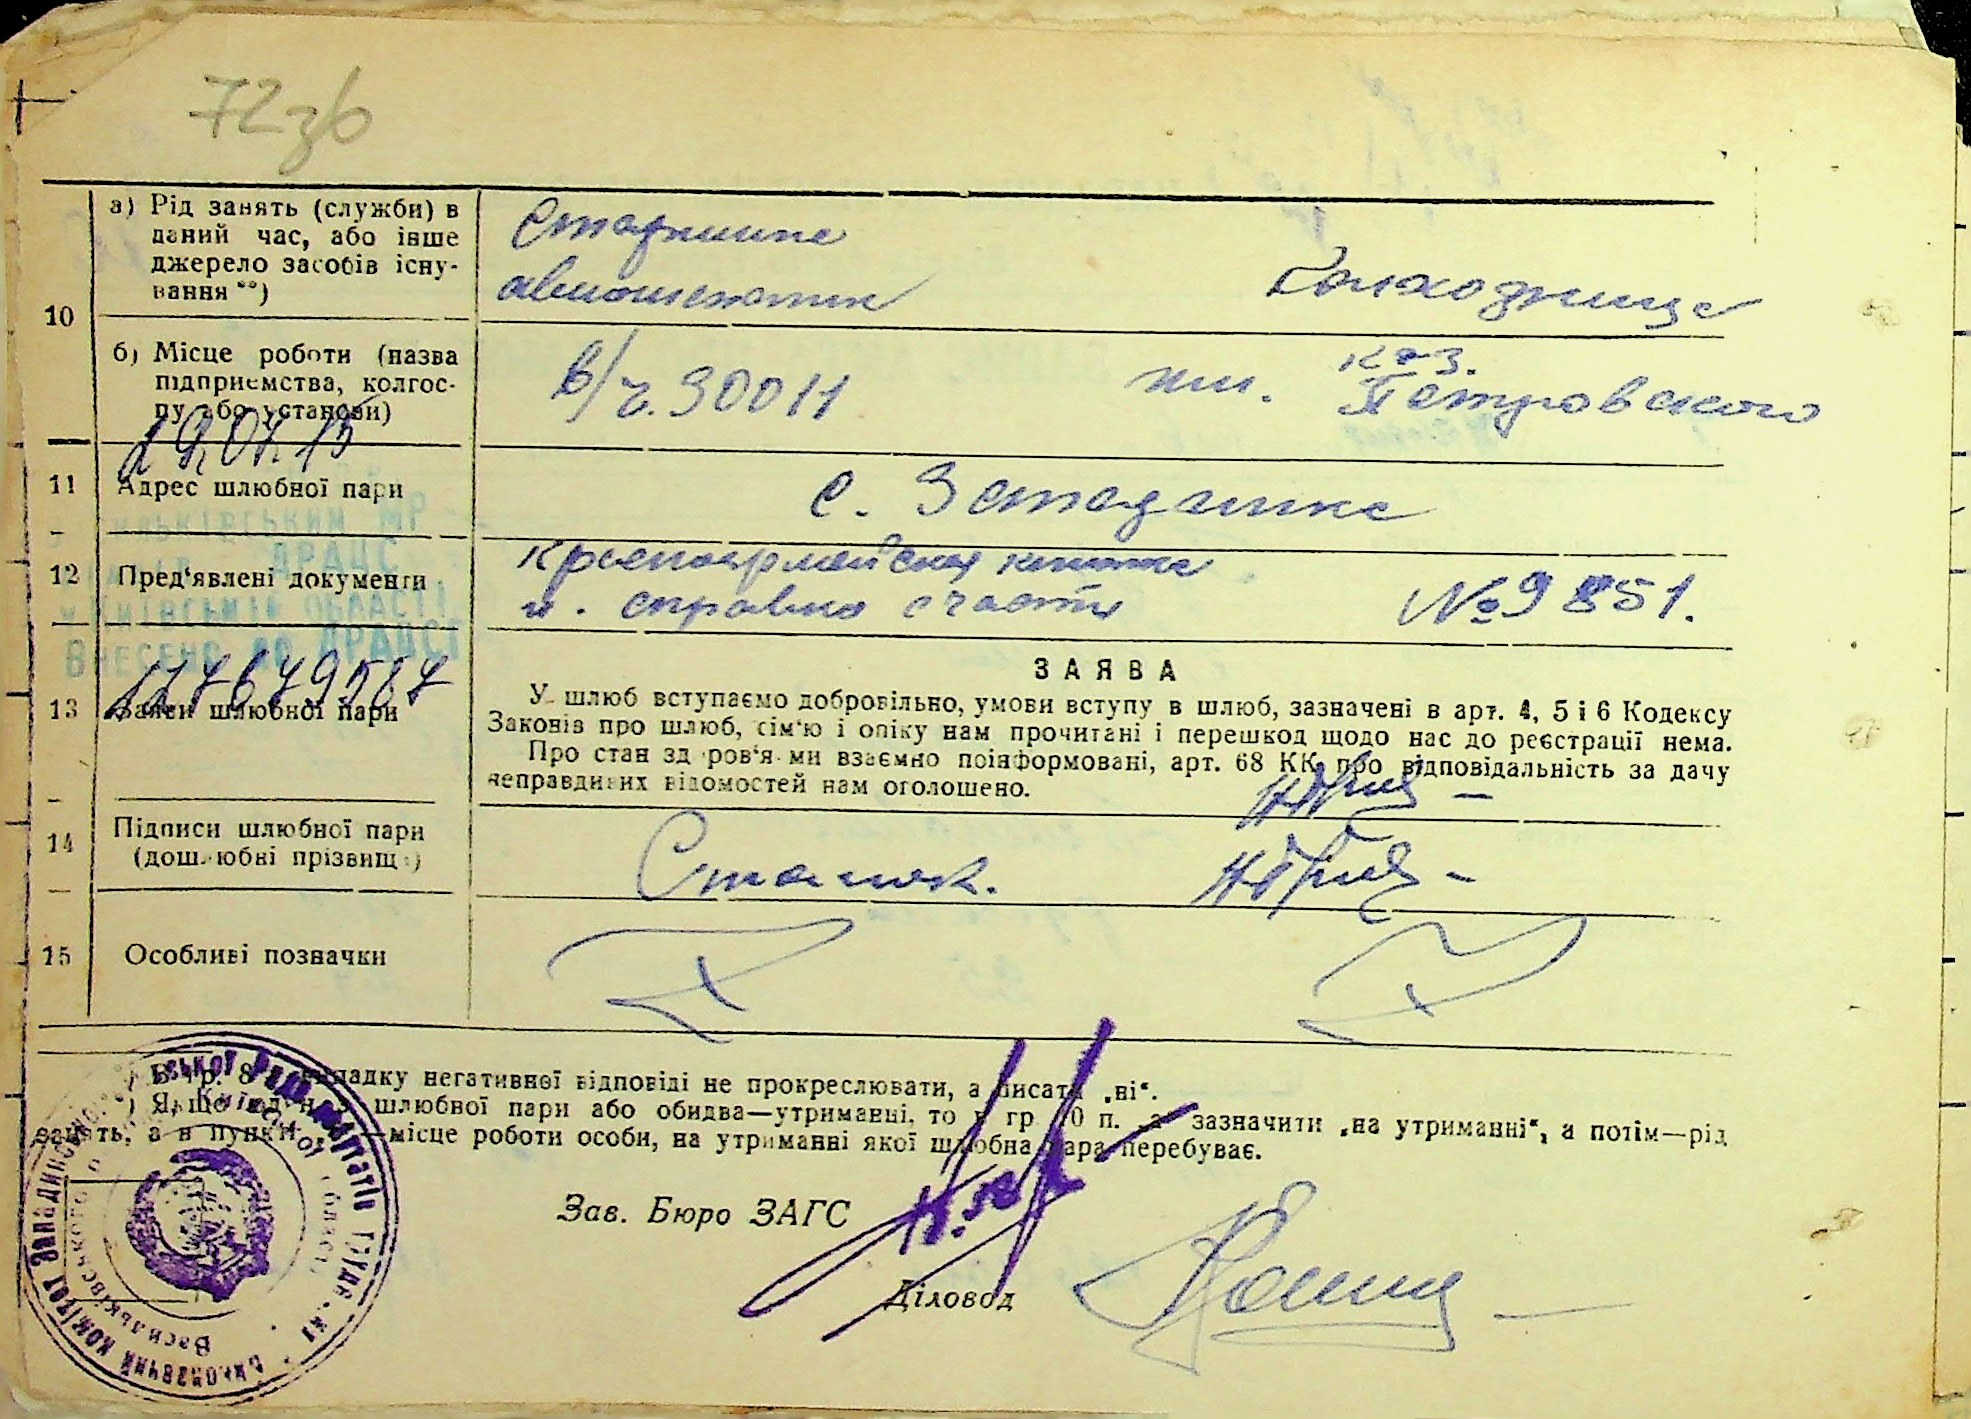 72зв
10
а) Рід занять (служби) в
даний час, або інше
джерело засобів існу-
вання **)
Старшина
авиамеханик
Колхозница
б) Місце роботи (назва
підприємства, колгос-
пу або установи)
в/ч. 30011
им. Петровского
каз.
29.04.15
11
Адрес шлюбної пари
с. Западинка
12
Пред'явлені документи
красноармейская книжка
и. справка с части
№ 9851.
ДРАЦС
КИЇВСЬКІЙ ОБЛАСТІ
ВНЕСЕНО ДО ДРАЦСГ
13
Заяви шлюбної пари
ЗАЯВА
У шлюб вступаємо добровільно, умови вступу в шлюб, зазначені в арт. 4, 5 і 6 Кодексу
Законів про шлюб, сім'ю і опіку нам прочитані і перешкод щодо нас до реєстрації нема.
Про стан здоров'я ми взаємно поінформовані, арт. 68 КК про відповідальність за дачу
неправдивих відомостей нам оголошено.
14
Підписи шлюбної пари
(дошлюбні прізвища)
15
Особливі позначки
В гр. 8 випадку негативної відповіді не прокреслювати, а писати „ні“.
Якщо один з шлюбної пари або обидва—утриманці, то в гр. 10 п. „а“ зазначити „на утриманні“, а потім—рід
занять, а в пункті —місце роботи особи, на утриманні якої шлюбна пара перебуває.
Зав. Бюро ЗАГС
Діловод
Виконавчий комітет Западинської сільської Ради депутатів трудящих
Васильківського р-ну Київської області